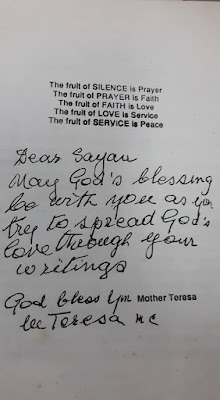 The fruit of SILENCE is Prayer
The fruit of PRAYER is Faith
The fruit of FAITH is Love
The fruit of LOVE is Service
The fruit of SERVICE is Peace
Dear Sayan
May God's blessing
be with you as you
try to spread God's
love through your
writings
God bless you Mother Teresa
M Teresa mc